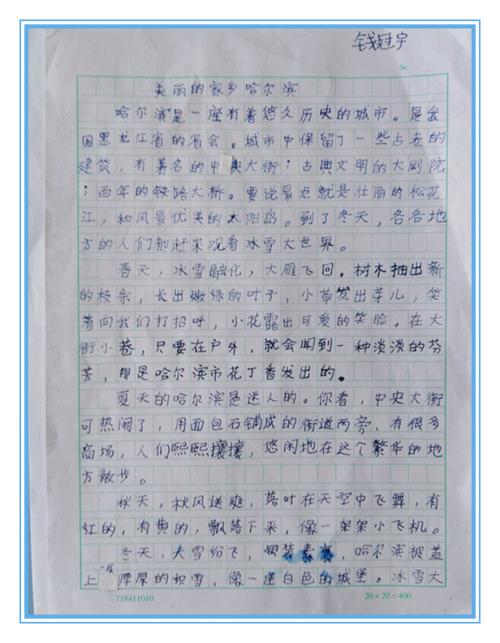 钱冠宇
No
美丽的家乡哈尔滨
哈尔滨是一座有着悠久历史的城市。是我
国黑龙江省的省会。城市中保留了一些古老的
建筑，有著名的中央大街；古典文明的大剧院
；百年的铁路大桥。要说景点就是壮丽的松花
江，和风景优美的太阳岛。到了冬天，各各地
方的人们都赶来观看冰雪大世界。
春天，冰雪融化，大雁飞回。树木抽出新
的枝条，长出嫩绿的叶子，小草发出芽儿，笑
着向我们打招呼，小花露出可爱的笑脸。在大
街小巷，只要在户外，就会闻到一种淡淡的芬
芳，那是哈尔滨市花丁香发出的。
夏天的哈尔滨是迷人的。你看，中央大街
可热闹了，用面包石铺成的街道两旁，有很多
商场，人们熙熙攘攘，悠闲地在这个繁华的地
方散步。
秋天，秋风送爽，落叶在天空中飞舞，有
红的，有黄的，飘落下来，像一架架小飞机。
冬天，大雪纷飞，银装素裹，哈尔滨被盖
上一层厚厚的积雪，像一座白色的城堡。冰雪大
718411010
20×20=400